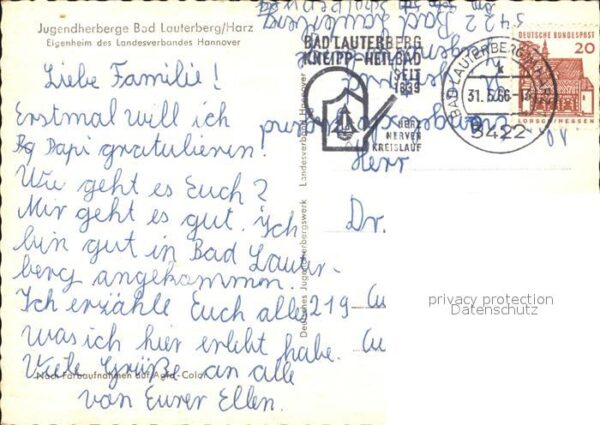 Jugendherberge Bad Lauterberg/Harz
Eigenheim des Landesverbandes Hannover
Liebe Familie!
Erstmal will ich
Papi gratulieren!
Wie geht es Euch?
Mir geht es gut. Ich
bin gut in Bad Lauter-
berg angekommen.
Ich erzähle Euch alle
was ich hier erlebt habe.
Viele Grüße an alle
von Eurer Ellen.
Nach Farbaufnahmen auf Agfa-Color
Deutsches Jugendherbergswerk Landesverband Hannover
5422 Bad Lauterberg
BAD LAUTERBERG
KNEIPP-HEILBAD
SEIT
1839
HERZ
NERVEN
KREISLAUF
BAD LAUTERBERG IM HARZ
31.5.66-17
3422
DEUTSCHE BUNDESPOST
20
LORSCH/HESSEN
Herr
Dr.
219
privacy protection
Datenschutz